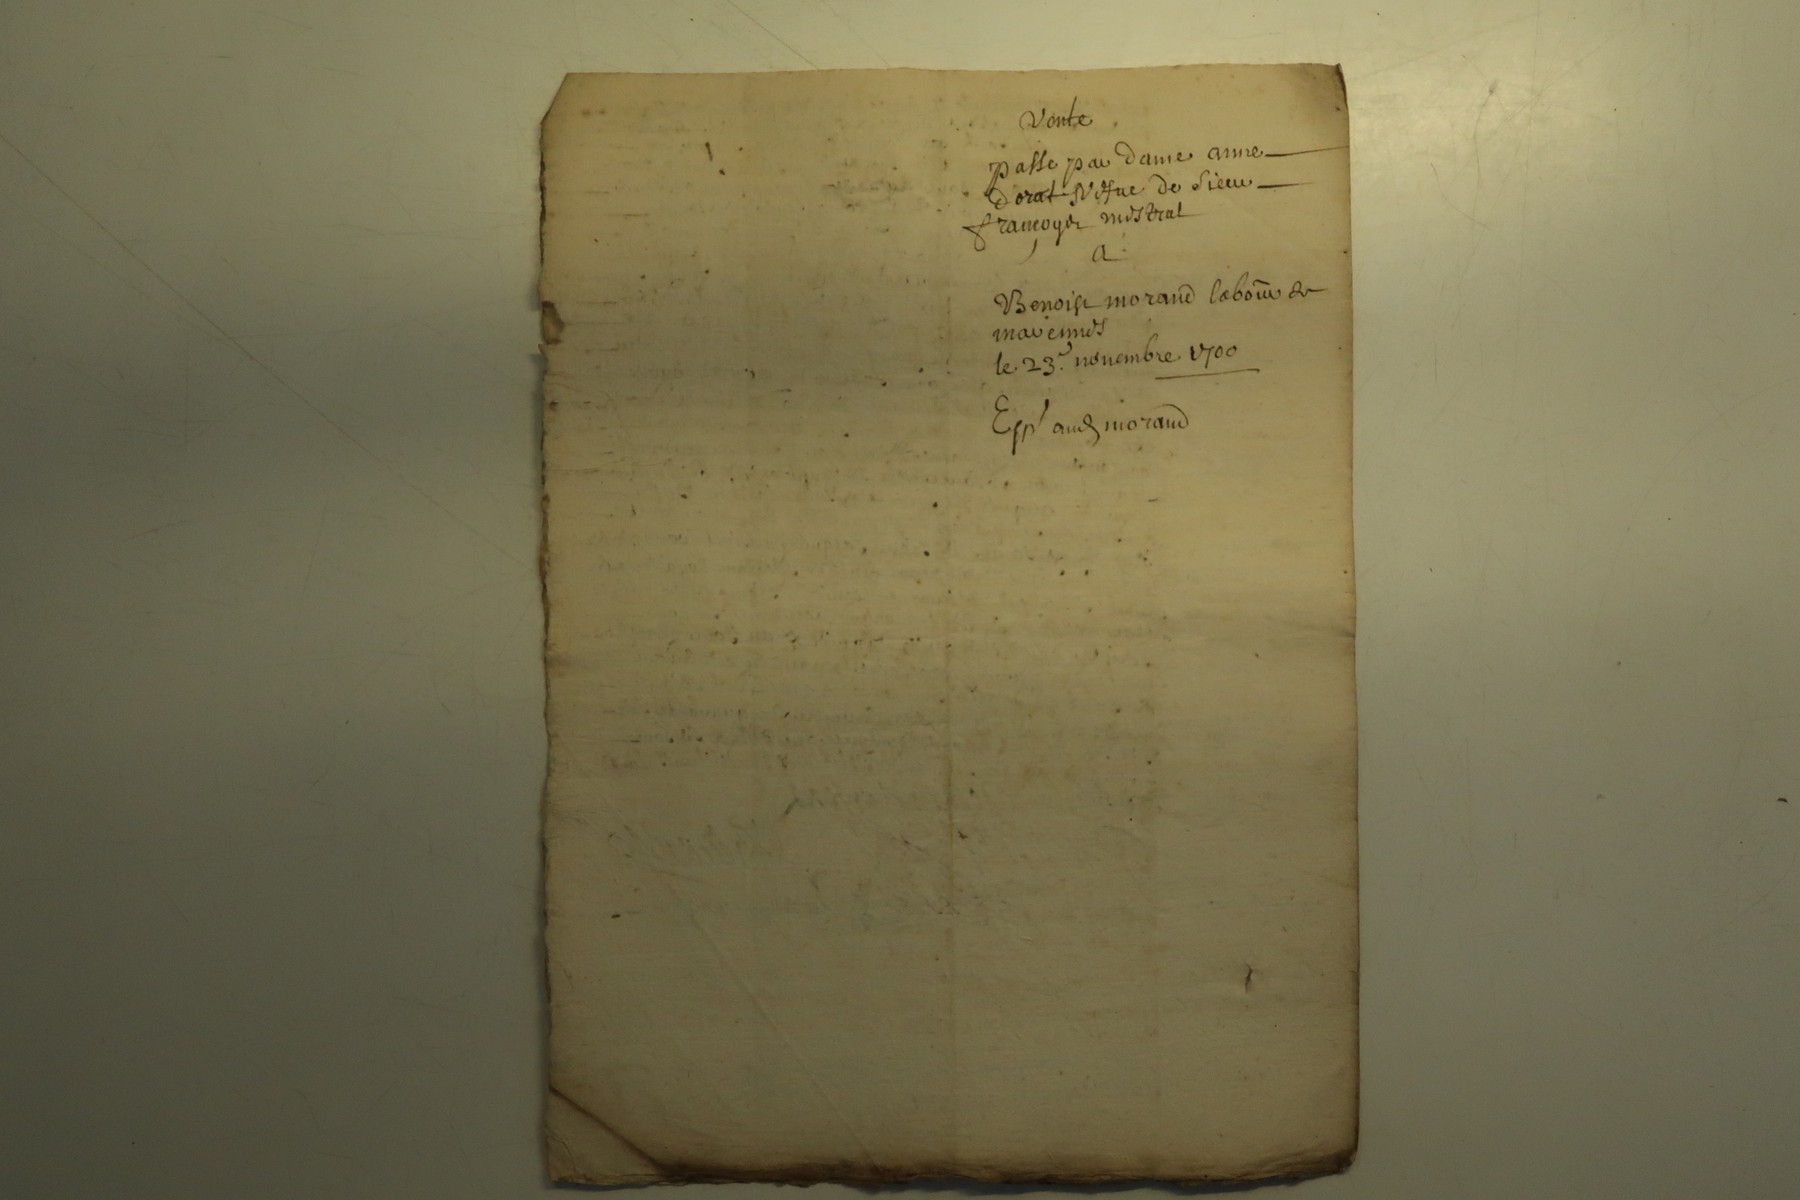 Vente
passe par dame anne
dorat vefue de sieur
francoys mistral
a
Benoist morand labour de
mavennes
le 23e novembre 1700
Exp audt morand